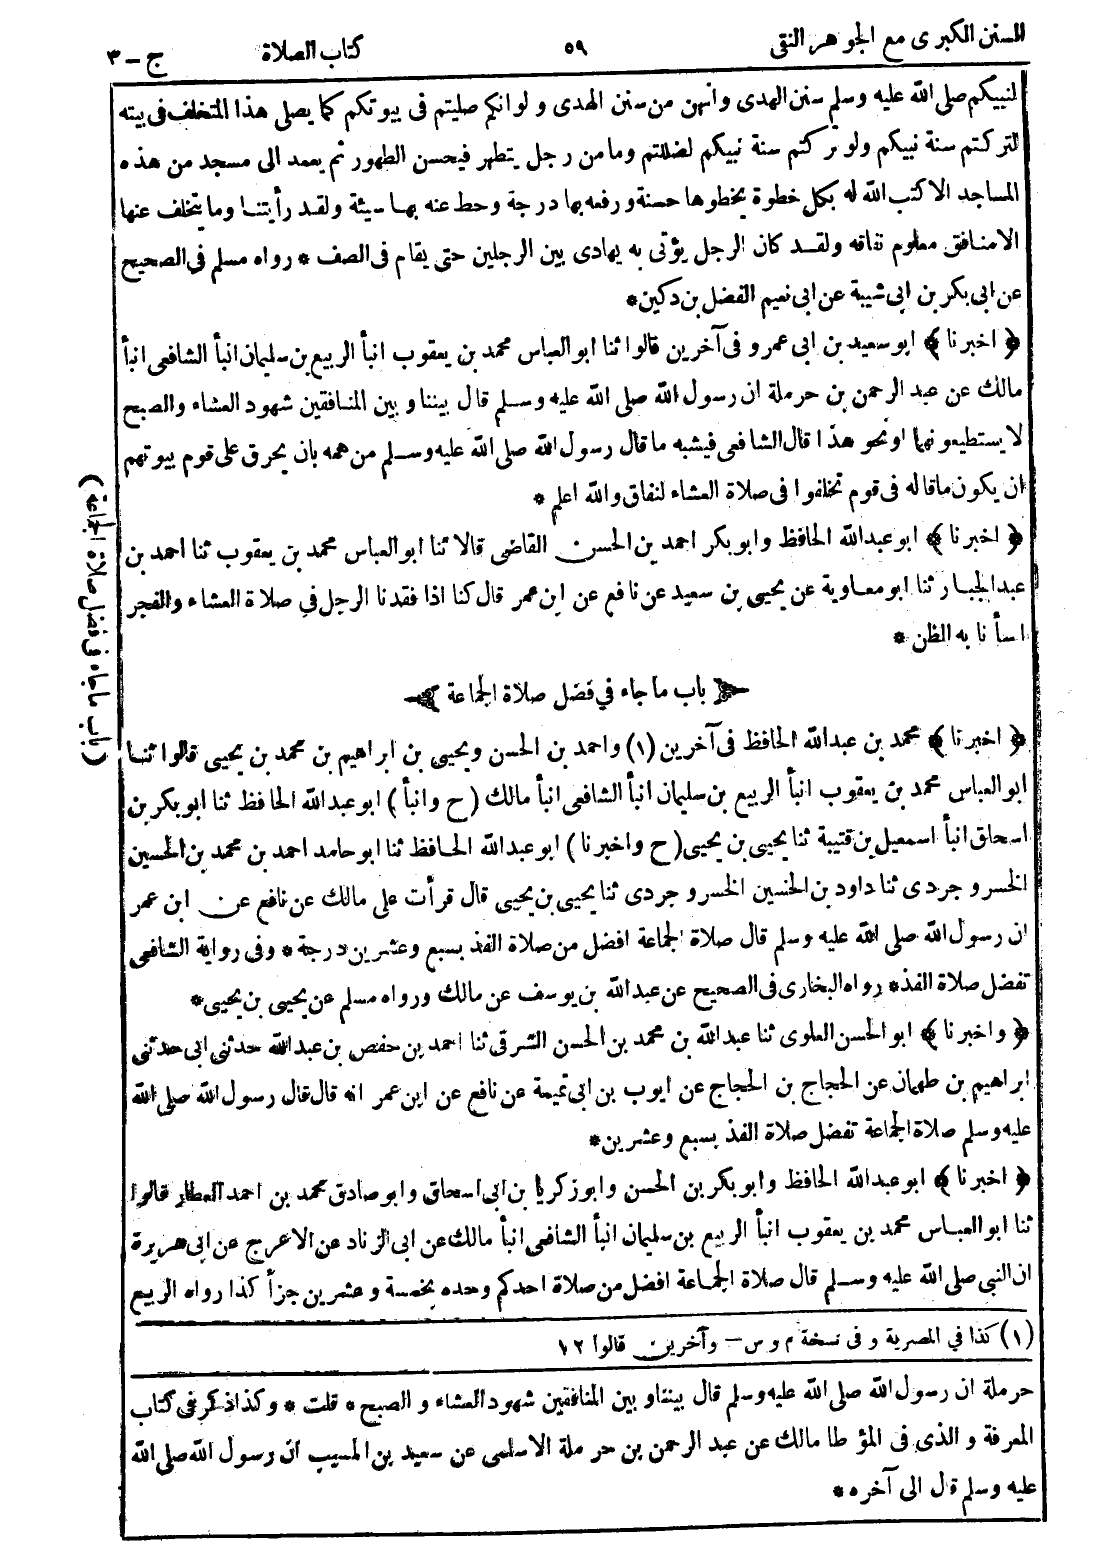 السنن الكبرى مع الجوهر النقى ٥٩ كتاب الصلاة ج - ٣
لنبيكم صلى الله عليه وسلم سنن الهدى وانهن من سنن الهدى ولو انكم صليتم فى بيوتكم كما يصلى هذا المتخلف فى بيته
لتركتم سنة نبيكم ولو تركتم سنة نبيكم لضللتم وما من رجل يتطهر فيحسن الطهور ثم يعمد الى مسجد من هذه
المساجد الا كتب الله له بكل خطوة يخطوها حسنة ورفعه بها درجة وحط عنه بها سيئة ولقد رأيتنا وما يتخلف عنها
الا منافق معلوم نفاقه ولقد كان الرجل يؤتى به يهادى بين الرجلين حتى يقام فى الصف * رواه مسلم فى الصحيح
عن ابى بكر بن ابى شيبة عن ابى نعيم الفضل بن دكين *
﴿ اخبرنا ﴾ ابو سعيد بن ابى عمرو فى آخرين قالوا ثنا ابو العباس محمد بن يعقوب انبأ الربيع بن سليمان انبأ الشافعى انبأ
مالك عن عبد الرحمن بن حرملة ان رسول الله صلى الله عليه وسلم قال بيننا وبين المنافقين شهود العشاء والصبح
لا يستطيعونهما او نحو هذا قال الشافعى فيشبه ما قال رسول الله صلى الله عليه وسلم من همه بان يحرق على قوم بيوتهم
ان يكون ما قاله فى قوم تخلفوا فى صلاة العشاء لنفاق والله اعلم *
﴿ اخبرنا ﴾ ابو عبد الله الحافظ وابو بكر احمد بن الحسن القاضى قالا ثنا ابو العباس محمد بن يعقوب ثنا احمد بن
عبد الجبار ثنا ابو معاوية عن يحيى بن سعيد عن نافع عن ابن عمر قال كنا اذا فقدنا الرجل في صلاة العشاء والفجر
اسأنا به الظن *
باب ما جاء في فضل صلاة الجماعة
(باب ما جاء فى فضل صلاة الجماعة)
﴿ اخبرنا ﴾ محمد بن عبد الله الحافظ فى آخرين (١) واحمد بن الحسن ويحيى بن ابراهيم بن محمد بن يحيى قالوا ثنا
ابو العباس محمد بن يعقوب انبأ الربيع بن سليمان انبأ الشافعى انبأ مالك (ح وانبأ) ابو عبد الله الحافظ ثنا ابو بكر بن
اسحاق انبأ اسمعيل بن قتيبة ثنا يحيى بن يحيى (ح واخبرنا) ابو عبد الله الحافظ ثنا ابو حامد احمد بن محمد بن الحسين
الخسروجردى ثنا داود بن الحسين الخسروجردى ثنا يحيى بن يحيى قال قرأت على مالك عن نافع عن ابن عمر
ان رسول الله صلى الله عليه وسلم قال صلاة الجماعة افضل من صلاة الفذ بسبع وعشرين درجة * وفى رواية الشافعى
تفضل صلاة الفذ * رواه البخارى فى الصحيح عن عبد الله بن يوسف عن مالك ورواه مسلم عن يحيى بن يحيى *
﴿ واخبرنا ﴾ ابو الحسن العلوى ثنا عبد الله بن محمد بن الحسن الشرقى ثنا احمد بن حفص بن عبد الله حدثنى ابى حدثنى
ابراهيم بن طهمان عن الحجاج بن الحجاج عن ايوب بن ابى تميمة عن نافع عن ابن عمر انه قال قال رسول الله صلى الله
عليه وسلم صلاة الجماعة تفضل صلاة الفذ بسبع وعشرين *
﴿ اخبرنا ﴾ ابو عبد الله الحافظ وابو بكر بن الحسن وابو زكريا بن ابى اسحاق وابو صادق محمد بن احمد العطار قالوا
ثنا ابو العباس محمد بن يعقوب انبأ الربيع بن سليمان انبأ الشافعى انبأ مالك عن ابى الزناد عن الاعرج عن ابى هريرة
ان النبى صلى الله عليه وسلم قال صلاة الجماعة افضل من صلاة احدكم وحده بخمسة وعشرين جزأ كذا رواه الربيع
(١) كذا في المصرية و فى نسخة م و س - وآخرين قالوا ١٢
حرملة ان رسول الله صلى الله عليه وسلم قال بيننا وبين المنافقين شهود العشاء و الصبح * قلت * وكذا ذكر فى كتاب
المعرفة و الذى فى المؤطا مالك عن عبد الرحمن بن حرملة الاسلمى عن سعيد بن المسيب ان رسول الله صلى الله
عليه وسلم قال الى آخره *